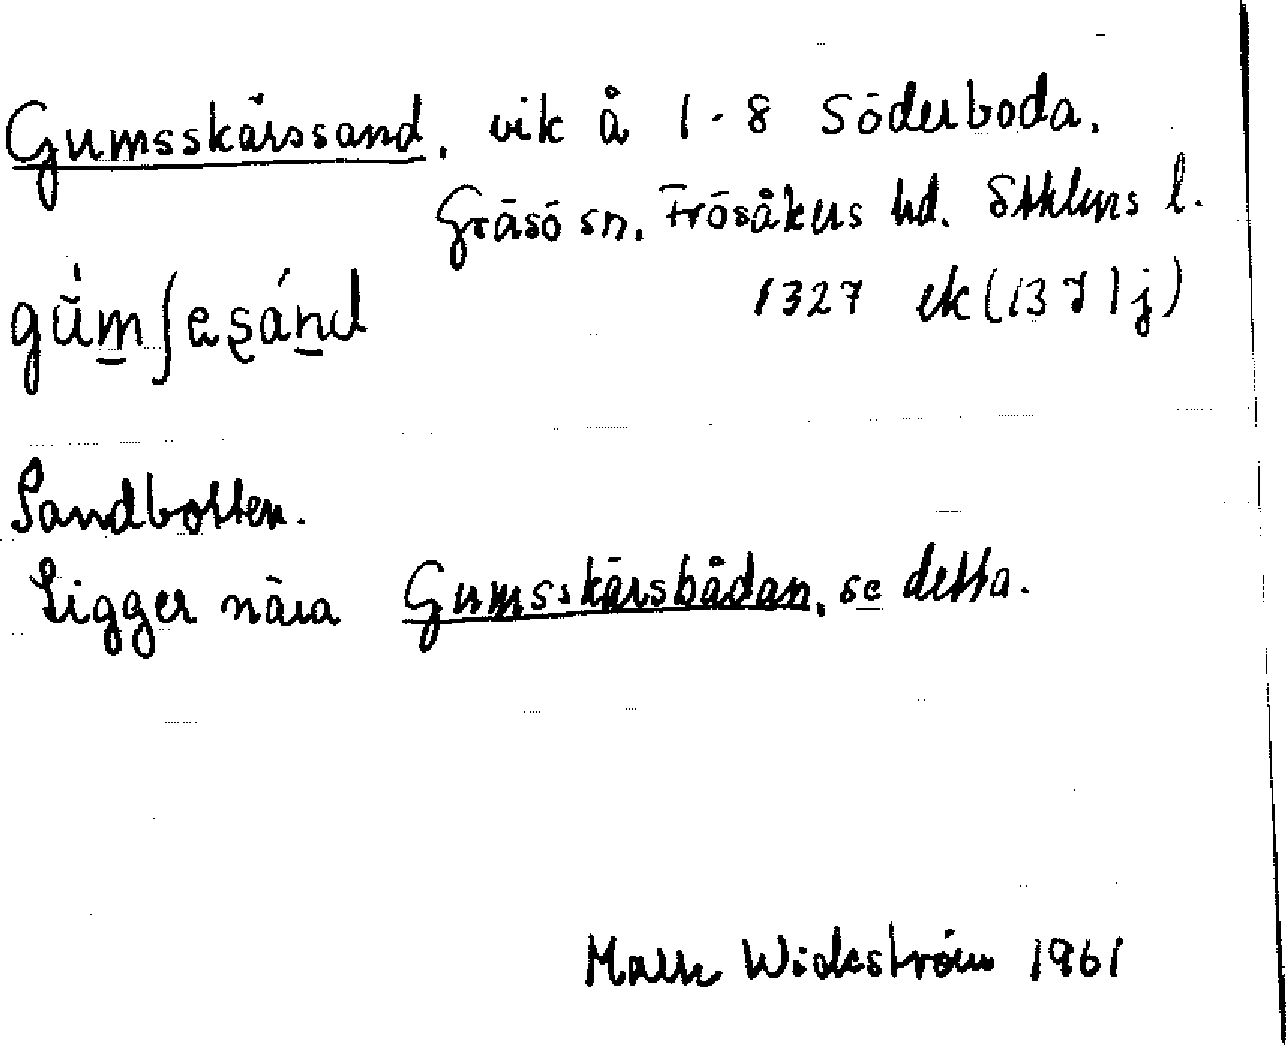 Gumsskärssand, vik å 1-8 Söderboda.
Gräsö sn. Frösåkers hd. Sthlms l.
1327 ek (13 I 1 j)
gu̇m̲ʃesánd
Sandbotten.
Ligger nära Gumsskärsbådan, se detta.
Wickström 1961